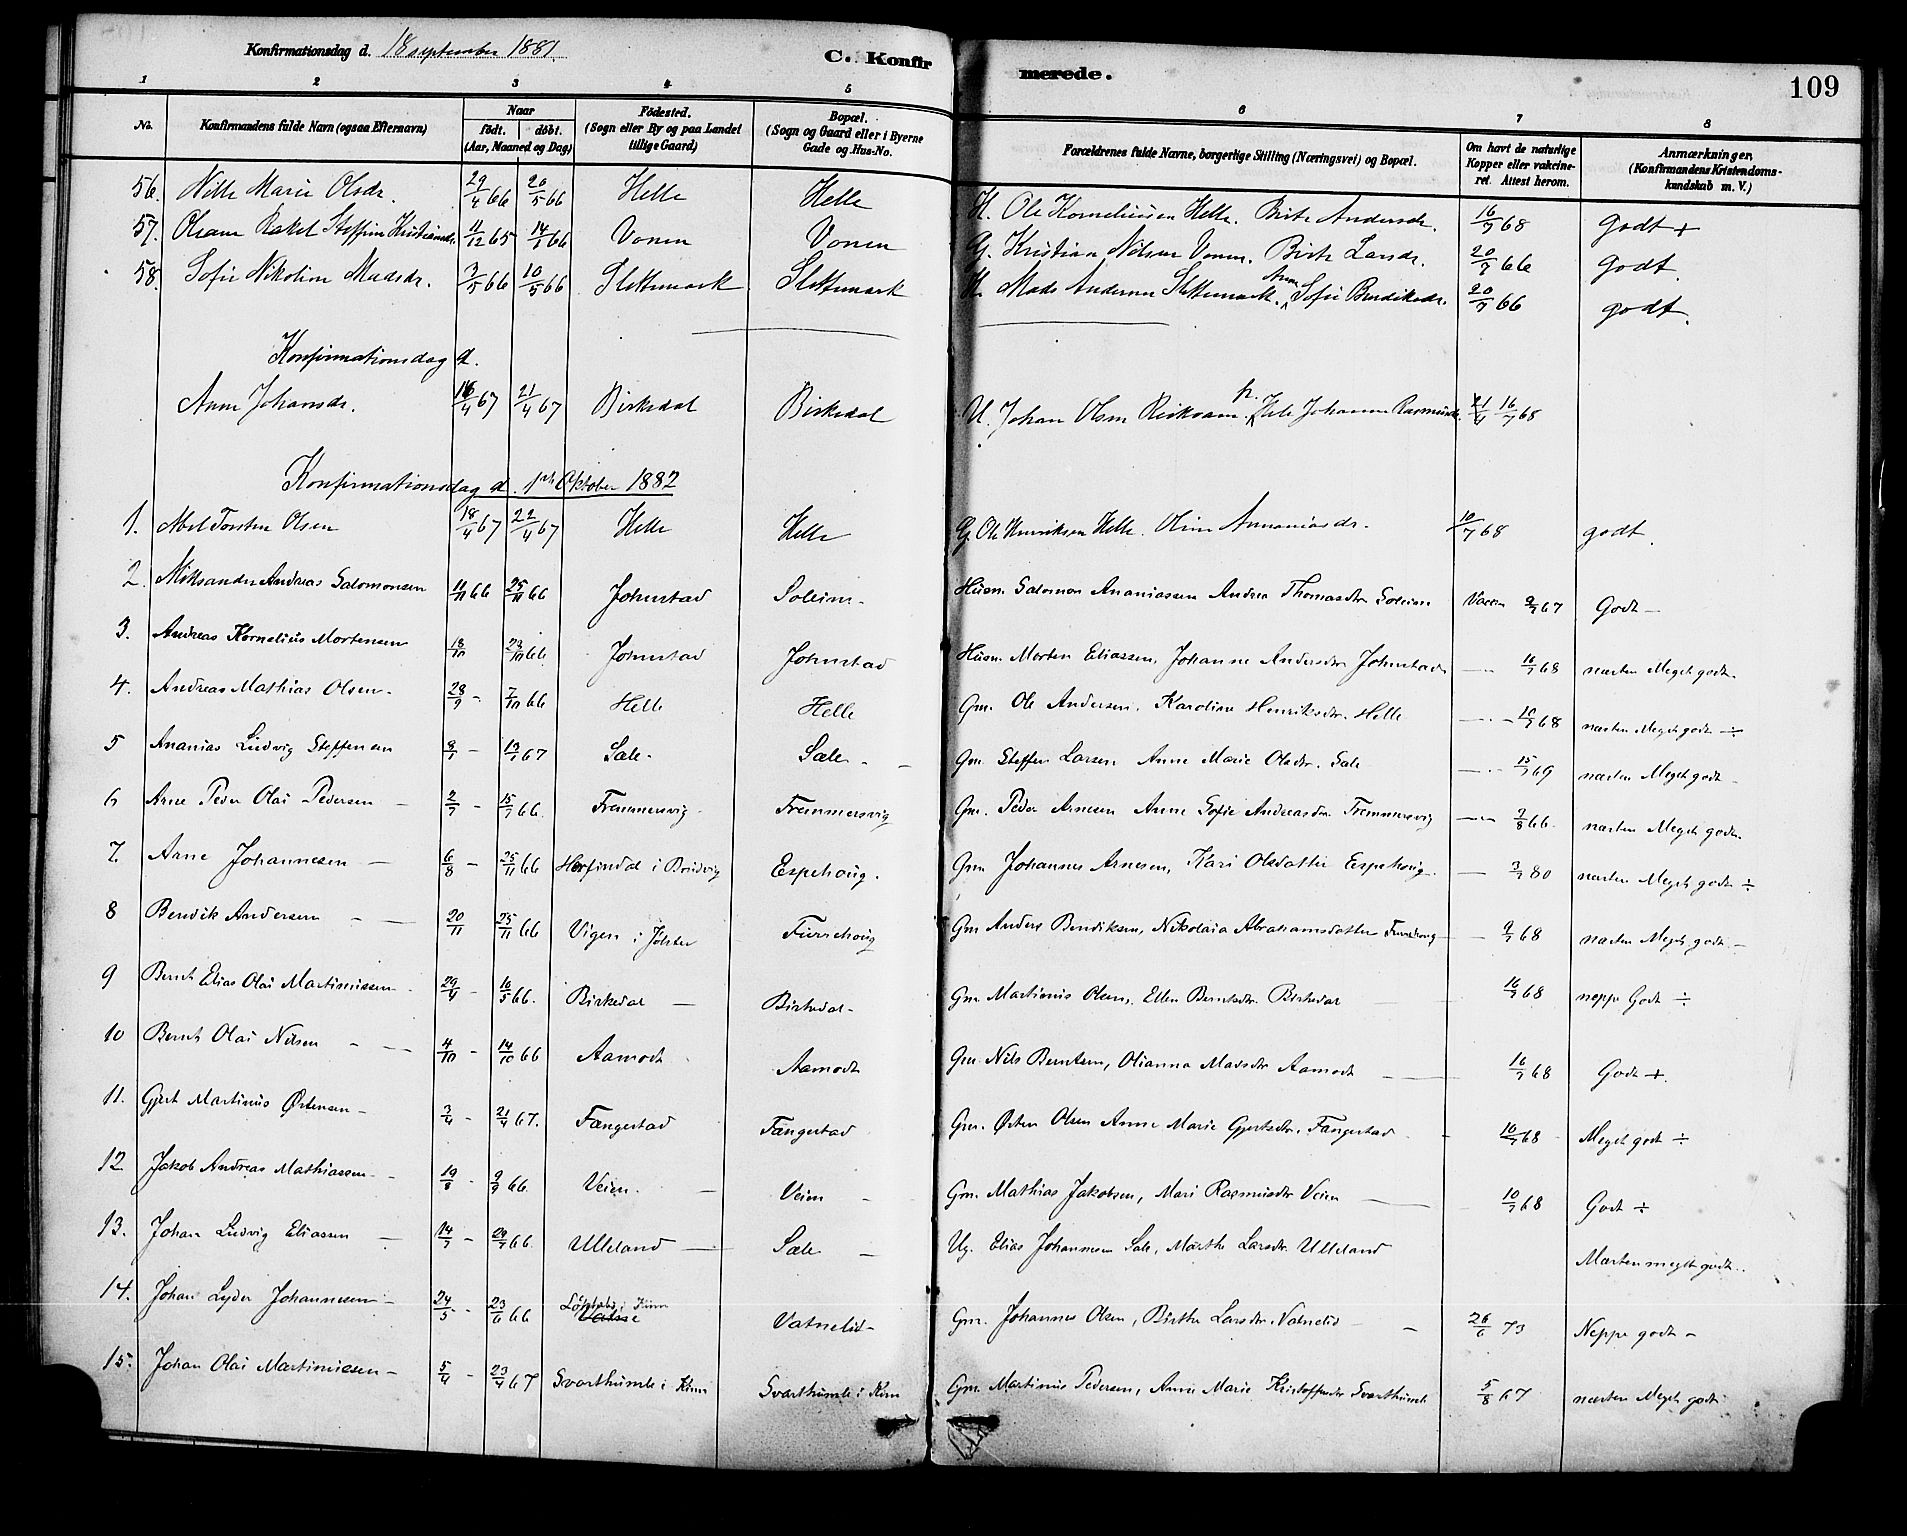 Konfirmationsdag d. 18 september 1881. C. Konfirmerede. 109
1 2 3 4 5 6 7 8
No. Konfirmandens fulde Navn (ogsaa Efternavn) Naar født. døbt. (Aar, Maaned og Dag) Fødested. (Sogn eller By og paa Landet tillige Gaard) Bopæl. (Sogn og Gaard eller i Byerne Gade og Hus-No. Forældrenes fulde Navne, borgerlige Stilling (Næringsvei) og Bopæl. Om havt de naturlige Kopper eller vakcineret. Attest herom. Anmærkninger. (Konfirmandens Kristendomskundskab m. V.)
56. Nille Marie Olsdr. 29/4 66 20/5 66 Helle Helle H. Ole Korneliusen Helle. Birte Andersdr. 16/7 68 Godt +
57. Oliane Rakel Steffine Kristiansdr. 11/12 65 14/1 66 Vonen Vonen G. Kristian Nilsen Vonen. Birte Larsdr. 20/7 66 Godt.
58. Sofie Nikoline Madsdr. 3/5 66 10/5 66 Slettemark Slettemark H. Mads Andersen Slettemark. Anne Sofie Bendiksdr. 20/7 66 godt.
Konfirmationsdag d.
Anne Johansdr. 16/4 67 21/4 67 Birkedal Birkedal U. Johan Olsen Rikvam. p. Johanne Rasmusdr. 21/4 16/7 68
Konfirmationsdag d. 1ste Oktober 1882
1. Abel Torsten Olsen 18/4 67 22/4 67 Helle Helle G. Ole Henriksen Helle. Oline Annaniasdr. 10/7 68 godt.
2. Aleksander Andreas Salomonsen 11/11 66 25/11 66 Johnstad Soleim - Husm. Salomon Ananiassen Andrea Thomasdtr Soleim Vaccin 9/7 67 Godt -
3. Andreas Kornelius Mortensen 18/10 28/10 66 Johnstad Johnstad Husm. Morten Eliassen, Johanne Andersdtr Johnstad - 16/7 68 næsten Meget godt.
4. Andreas Mathias Olsen - 28/9 - 7/10 66 Helle Helle Gm. Ole Andersen. Karoline Henriksdtr. Helle - 16/7 68 næsten Meget godt ÷
5 Ananias Ludvig Steffensen 9/1 - 13/1 67 Sæle - Sæle - Gm. Steffen Larsen Anne Marie Olsdtr. Sæle - 15/7 69 næsten Meget godt -
6 Arne Peder Olai Pedersen - 2/7 - 15/7 66. Fremmersvig Fremmersvig Gm. Peder Arnesen Anne Sofie Andreasdtr. Fremmersvig - 9/8 66. næsten Meget godt.
7. Arne Johannesen - 6/8 - 25/11 66 Herfindal i Brudvig Espehoug. Gm. Johannes Arnesen, Kari Olsdatter Espehoug. - 3/7 80 næsten Meget godt ÷
8 Bendik Andersen - 20/11 25/11 66 Vigen i Jølster Furrehoug Gm Anders Bendiksen, Nikolaia Abrahamsdatter Furrehoug - 9/7 68 næsten Meget godt -
9 Bernt Elias Olai Martinussen 29/4 - 16/5 66. Birkedal - Birkedal - Gm Martinus Olsen, Ellen Berntsdtr. Birkedal 16/7 68 neppe Godt ÷
10 Bernt Olai Nilsen - 4/10 - 14/10 66 Aamodt Aamodt Gm. Nils Berntsen, Olianna Madsdtr Aamodt - 16/7 68 Godt +.
11. Gjert Martinus Østensen - 3/4 - 21/4 67. Fængestad Fængestad Gm. Østen Olsen Anne Marie Gjertsdtr. Fængestad - 10/7 68 Meget godt ÷
12 Jakob Andreas Mathiassen - 19/8 - 9/9 66. Veien. - Veien - Gm. Mathias Jakobsen, Mari Rasmusdtr Veien - 10/7 68 Godt ÷
13. Johan Ludvig Eliassen - 14/7 - 29/7 66. Ulleland - Sæle - Ug. Elias Johannesen Sæle, Marthe Larsdtr. Ulleland Næsten meget godt.
14. Johan Lyder Johannesen - 24/5 - 23/6 66 i Kinn Vatnelid - Gm. Johannes Olsen, Birthe Larsdtr. Vatnelid - 26/6 73 Neppe godt -
15. Johan Olai Martinussen - 5/4 - 23/4 67 Svarthumle i Kinn Svarthumle i Kinn Gm. Martinus Pedersen, Anne Marie Kristoffersdtr Svarthumle 5/8 67 næsten Meget godt